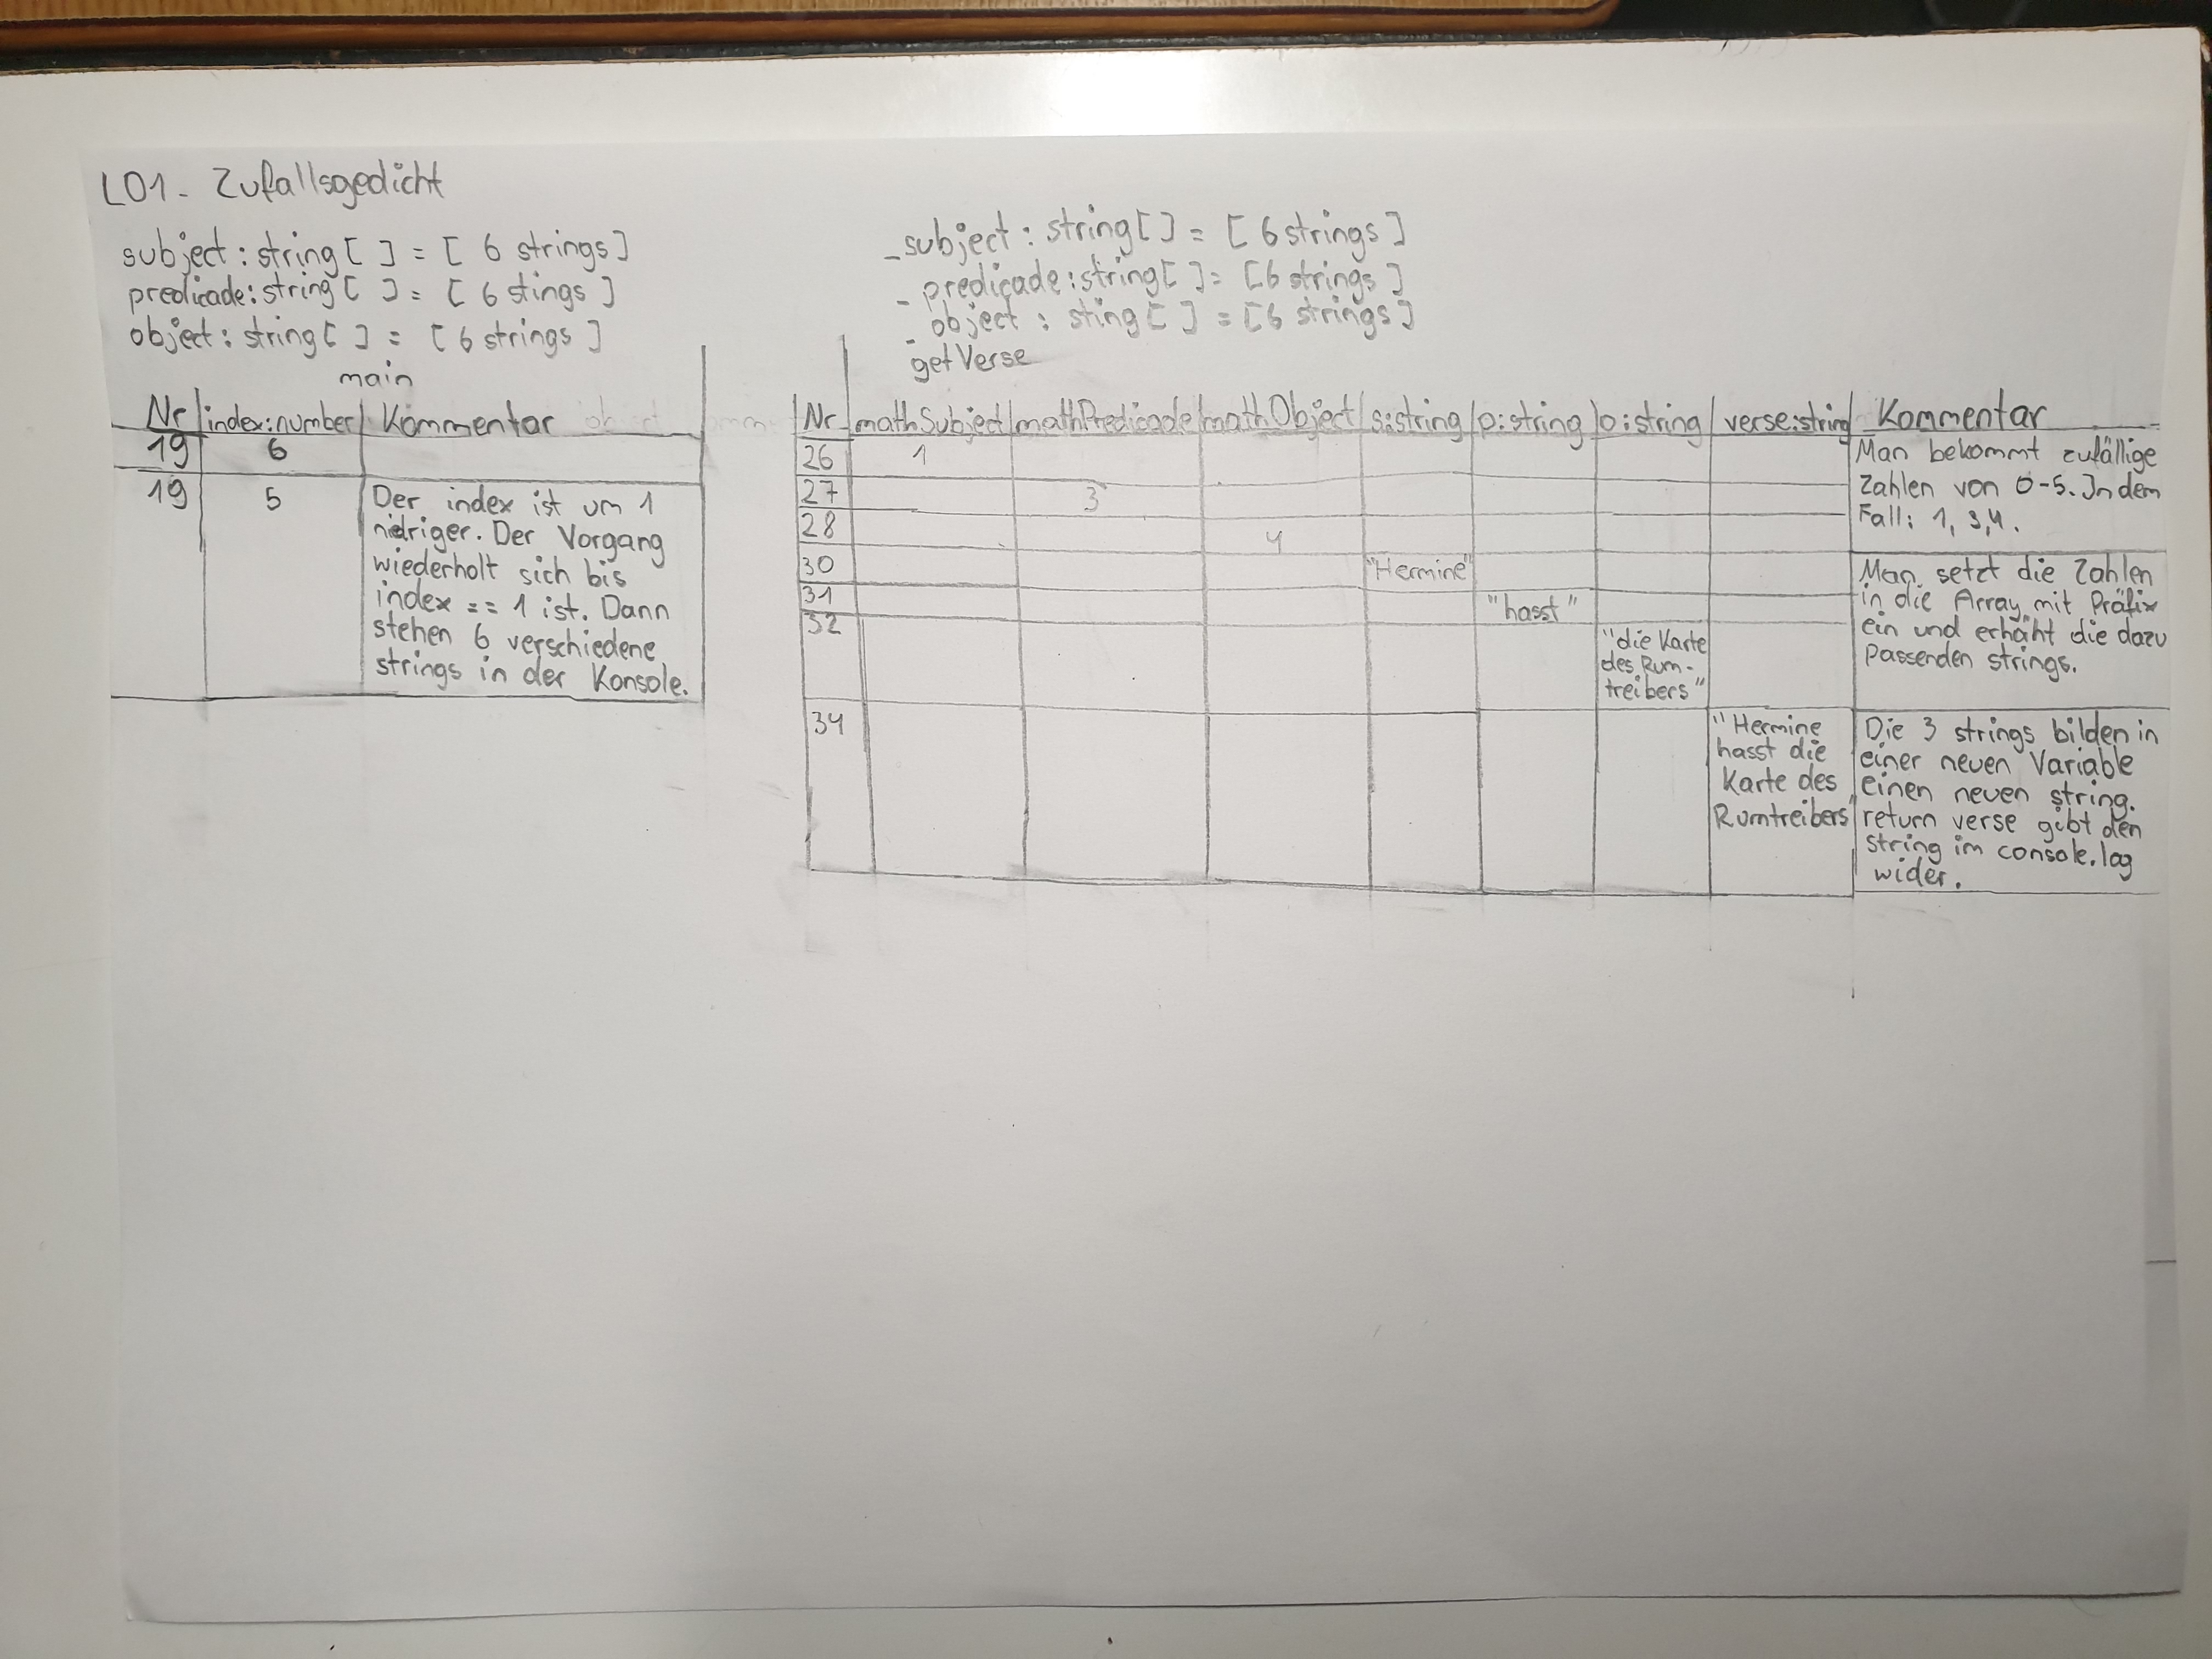 L01 - Zufallsgedicht
subject : string [ ] = [ 6 strings ]
predicade : string [ ] = [ 6 stings ]
object : string [ ] = [ 6 strings ]
main
Nr index:number Kommentar
19 6
19 5 Der index ist um 1
nidriger. Der Vorgang
wiederholt sich bis
index == 1 ist. Dann
stehen 6 verschiedene
strings in der Konsole.
_subject : string [ ] = [ 6 strings ]
- predicade : string [ ] = [ 6 strings ]
- object : sting [ ] = [ 6 strings ]
getVerse
Nr mathSubject mathPredicade mathObject s:string p:string o:string verse:string Kommentar
26 1 Man bekommt zufällige
27 3 Zahlen von 0-5. In dem
28 4 Fall: 1, 3,4.
30 "Hermine" Man setzt die Zahlen
31 "hasst" in die Array mit Präfix
32 "die Karte ein und erhält die dazu
des Rum- passenden strings.
treibers"
34 "Hermine Die 3 strings bilden in
hasst die einer neuen Variable
Karte des einen neuen string.
Rumtreibers" return verse gibt den
string im console.log
wider.